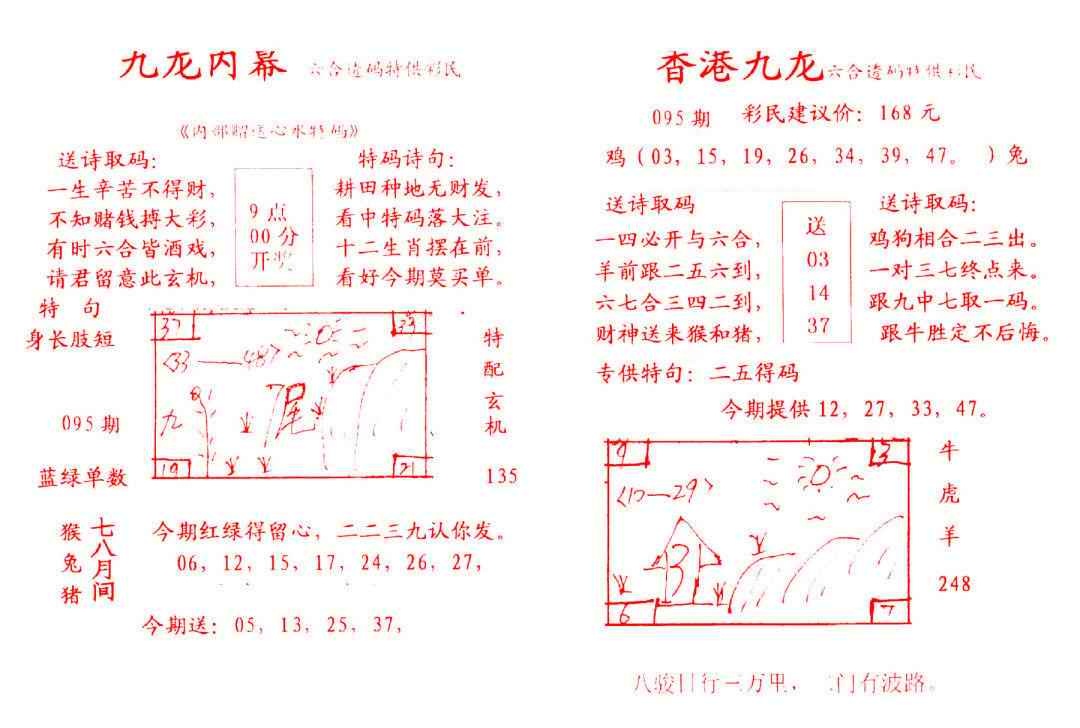 九龙内幕 六合透码特供彩民
《内部赠送心水特码》
送诗取码：
一生辛苦不得财，
不知赌钱搏大彩，
有时六合皆酒戏，
请君留意此玄机，
9点
00分
开奖
特码诗句：
耕田种地无财发，
看中特码落大注。
十二生肖摆在前，
看好今期莫买单。
特 句
身长肢短
095期
蓝绿单数
37
33
<33——48>
九
7尾
19
21
特
配
玄
机
135
猴
兔
猪
七八月间
今期红绿得留心，二二三九认你发。
06，12，15，17，24，26，27，
今期送：05，13，25，37，
香港九龙 六合透码特供彩民
095期 彩民建议价：168元
鸡（03，15，19，26，34，39，47。 ）兔
送诗取码
一四必开与六合，
羊前跟二五六到，
六七合三四二到，
财神送来猴和猪，
送
03
14
37
送诗取码：
鸡狗相合二三出。
一对三七终点来。
跟九中七取一码。
跟牛胜定不后悔。
专供特句：二五得码
今期提供12，27，33，47。
9
3
<17—29>
3
6
7
牛
虎
羊
248
八骏日行三万里， 门有波路。